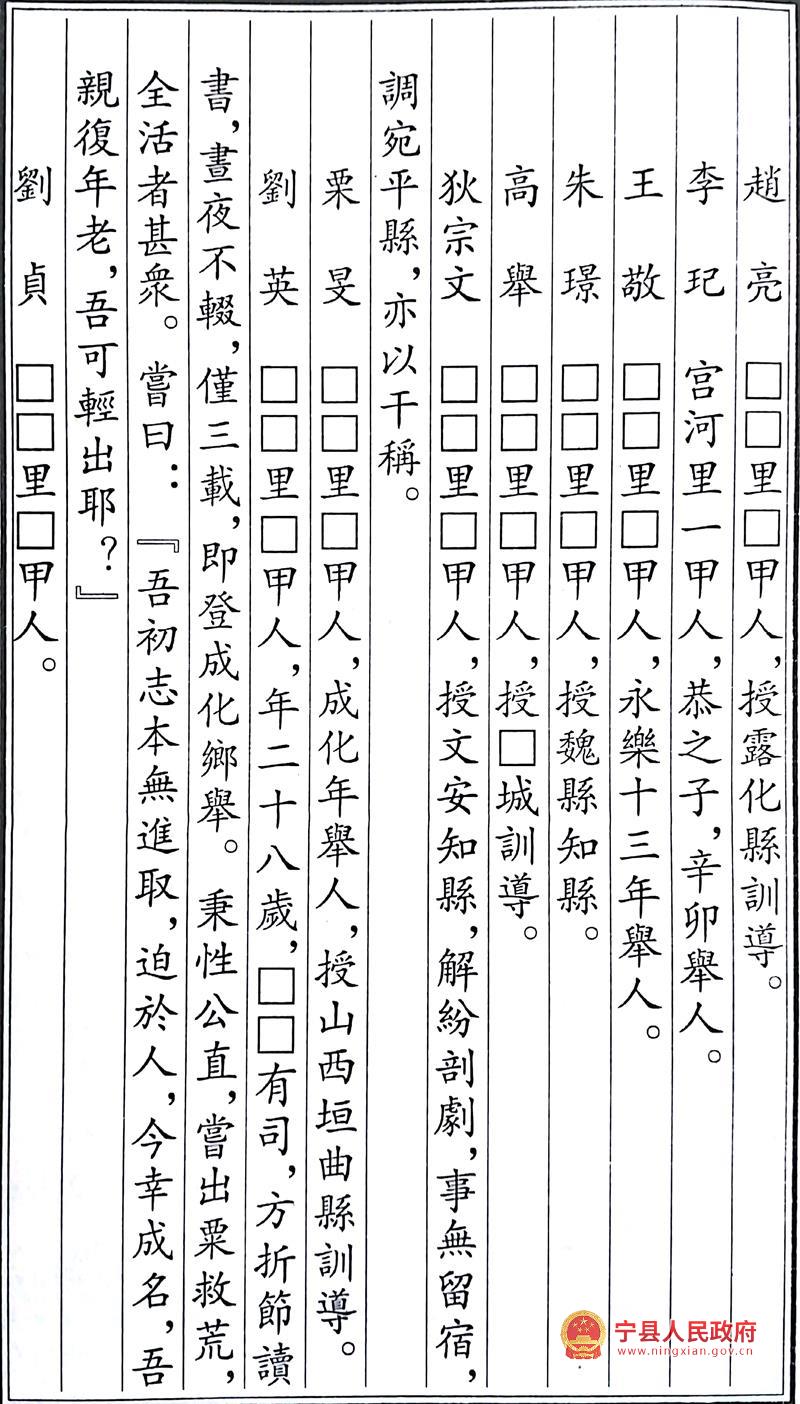 趙亮 □□里□甲人，授露化縣訓導。
李玘 宫河里一甲人，恭之子，辛卯舉人。
王敬 □□里□甲人，永樂十三年舉人。
朱璟 □□里□甲人，授魏縣知縣。
高舉 □□里□甲人，授□城訓導。
狄宗文 □□里□甲人，授文安知縣，解紛剖劇，事無留宿，
調宛平縣，亦以干稱。
栗旻 □□里□甲人，成化年舉人，授山西垣曲縣訓導。
劉英 □□里□甲人，年二十八歲，□□有司，方折節讀
書，晝夜不輟，僅三載，即登成化鄉舉。秉性公直，嘗出粟救荒，
全活者甚衆。嘗曰：『吾初志本無進取，迫於人，今幸成名，吾
親復年老，吾可輕出耶？』
劉貞 □□里□甲人。
宁县人民政府
www.ningxian.gov.cn